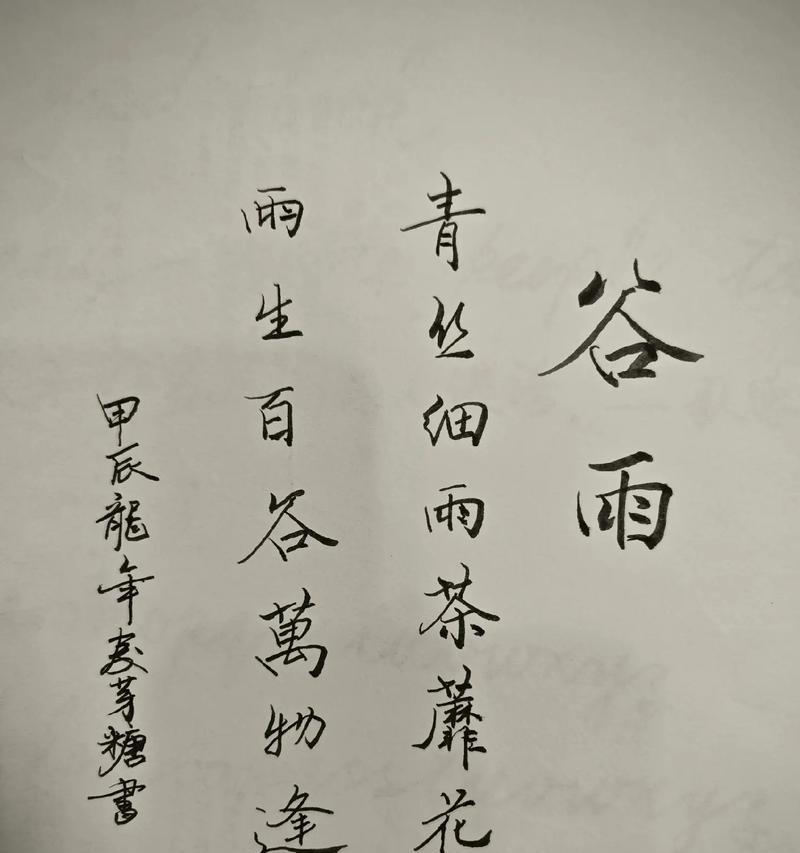 谷雨
青丝细雨茶蘼花
雨生百谷萬物逢
甲辰龍年麦芽糖書